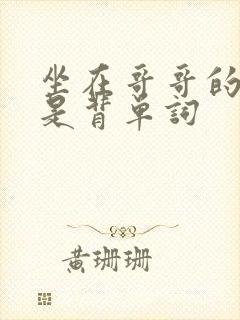 坐在哥哥的
是背单词
黄珊珊